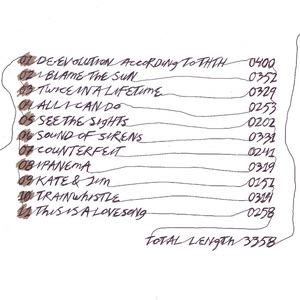 01 DE-EVOLUTION ACCORDING TO THTH 0400
02 I BLAME THE SUN 0352
03 TWICE IN A LIFETIME 0329
04 ALL I CAN DO 0253
05 SEE THE SIGHTS 0202
06 SOUND OF SIRENS 0331
07 COUNTERFEIT 0241
08 IPANEMA 0319
09 KATE & JIM 0152
10 TRAINWHISTLE 0314
11 THIS IS A LOVESONG 0258
TOTAL LENGTH 3358